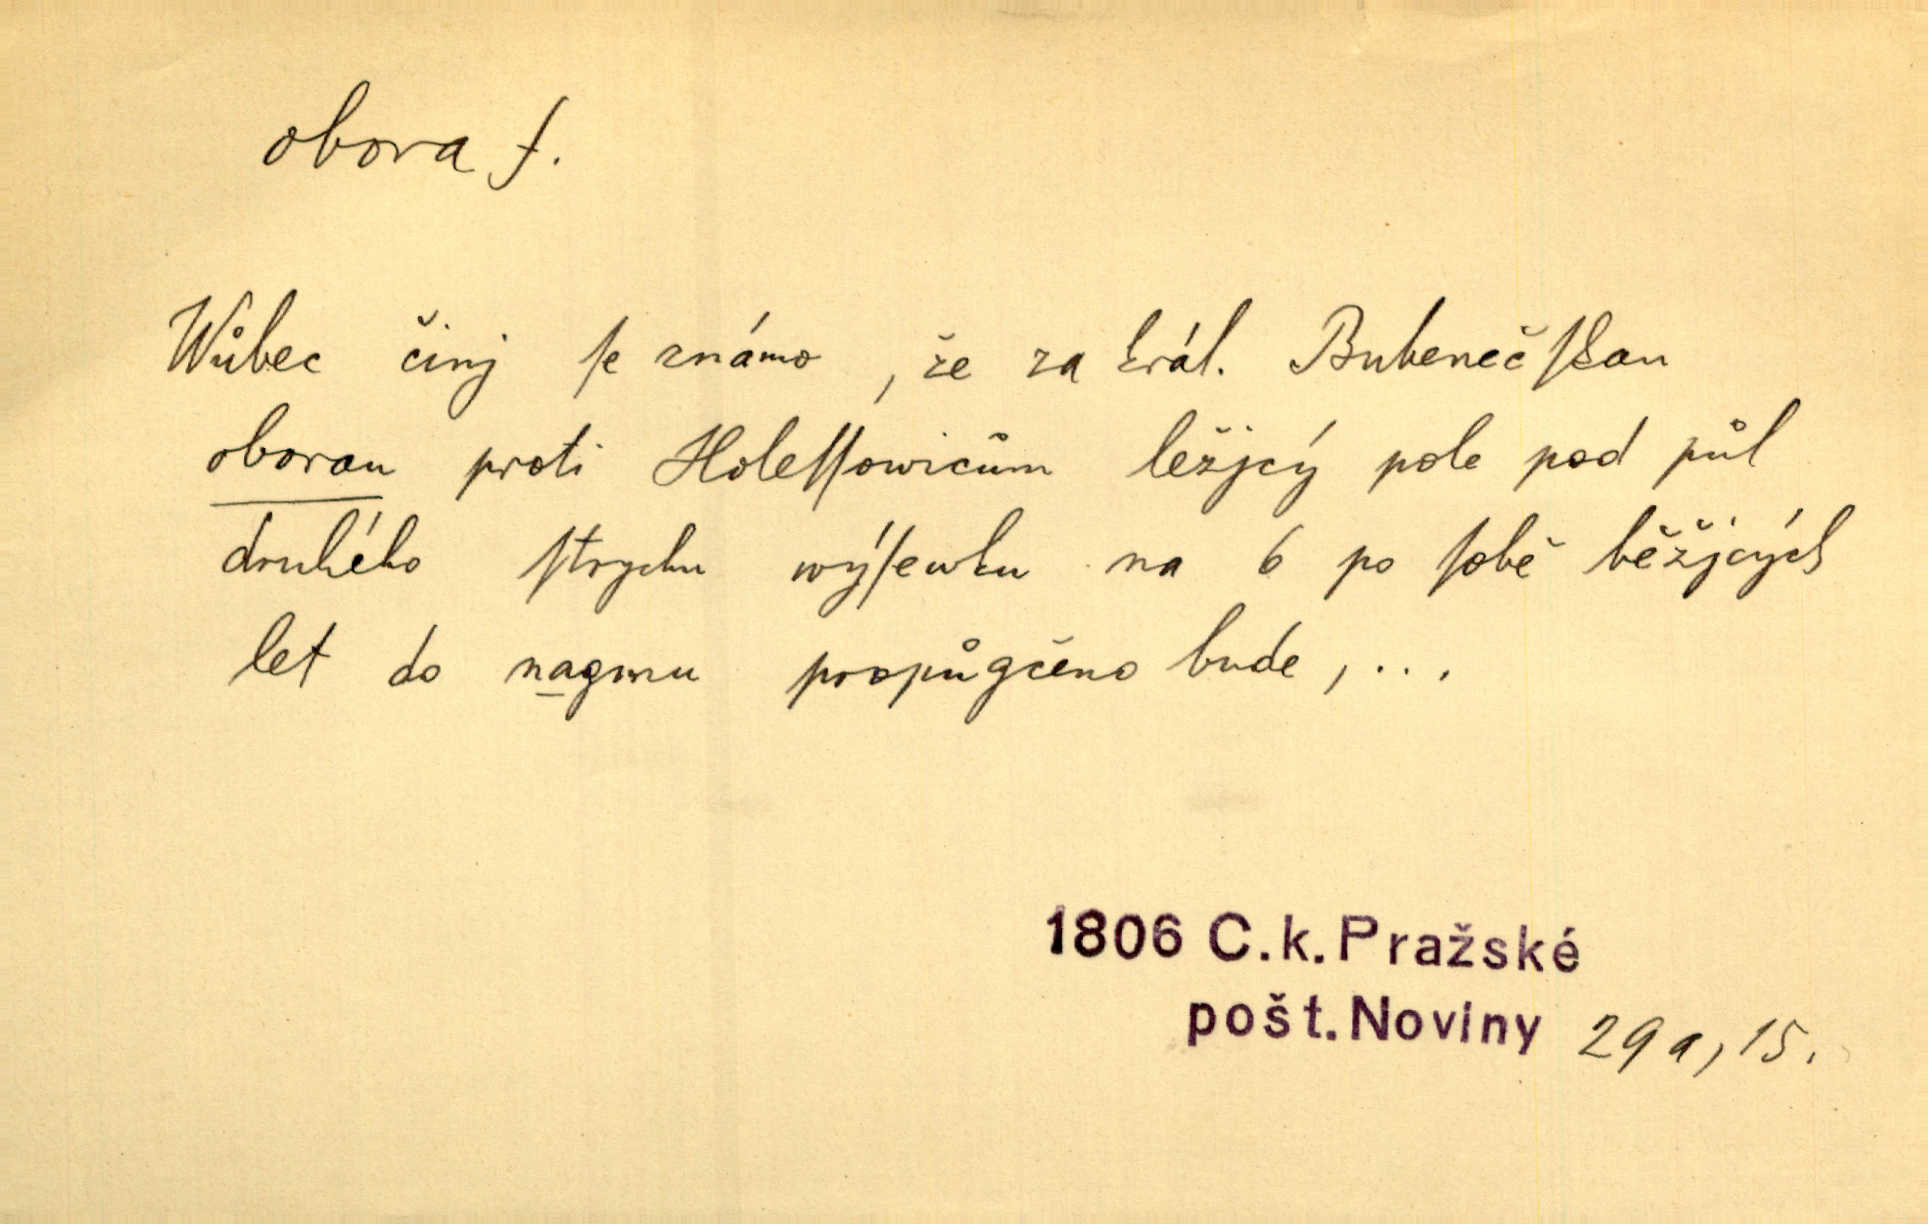 obora f.
Wůbec činj ſe známo, že za král. Bubenečſkau
oborau proti Holeſſowicům ležjcý pole pod půl
druhého ſtrychu wýſewku na 6 po ſobě běžjcých
let do nagmu propůgčeno bude, ...
1806 C.k. Pražské
pošt. Noviny 29a, 15.